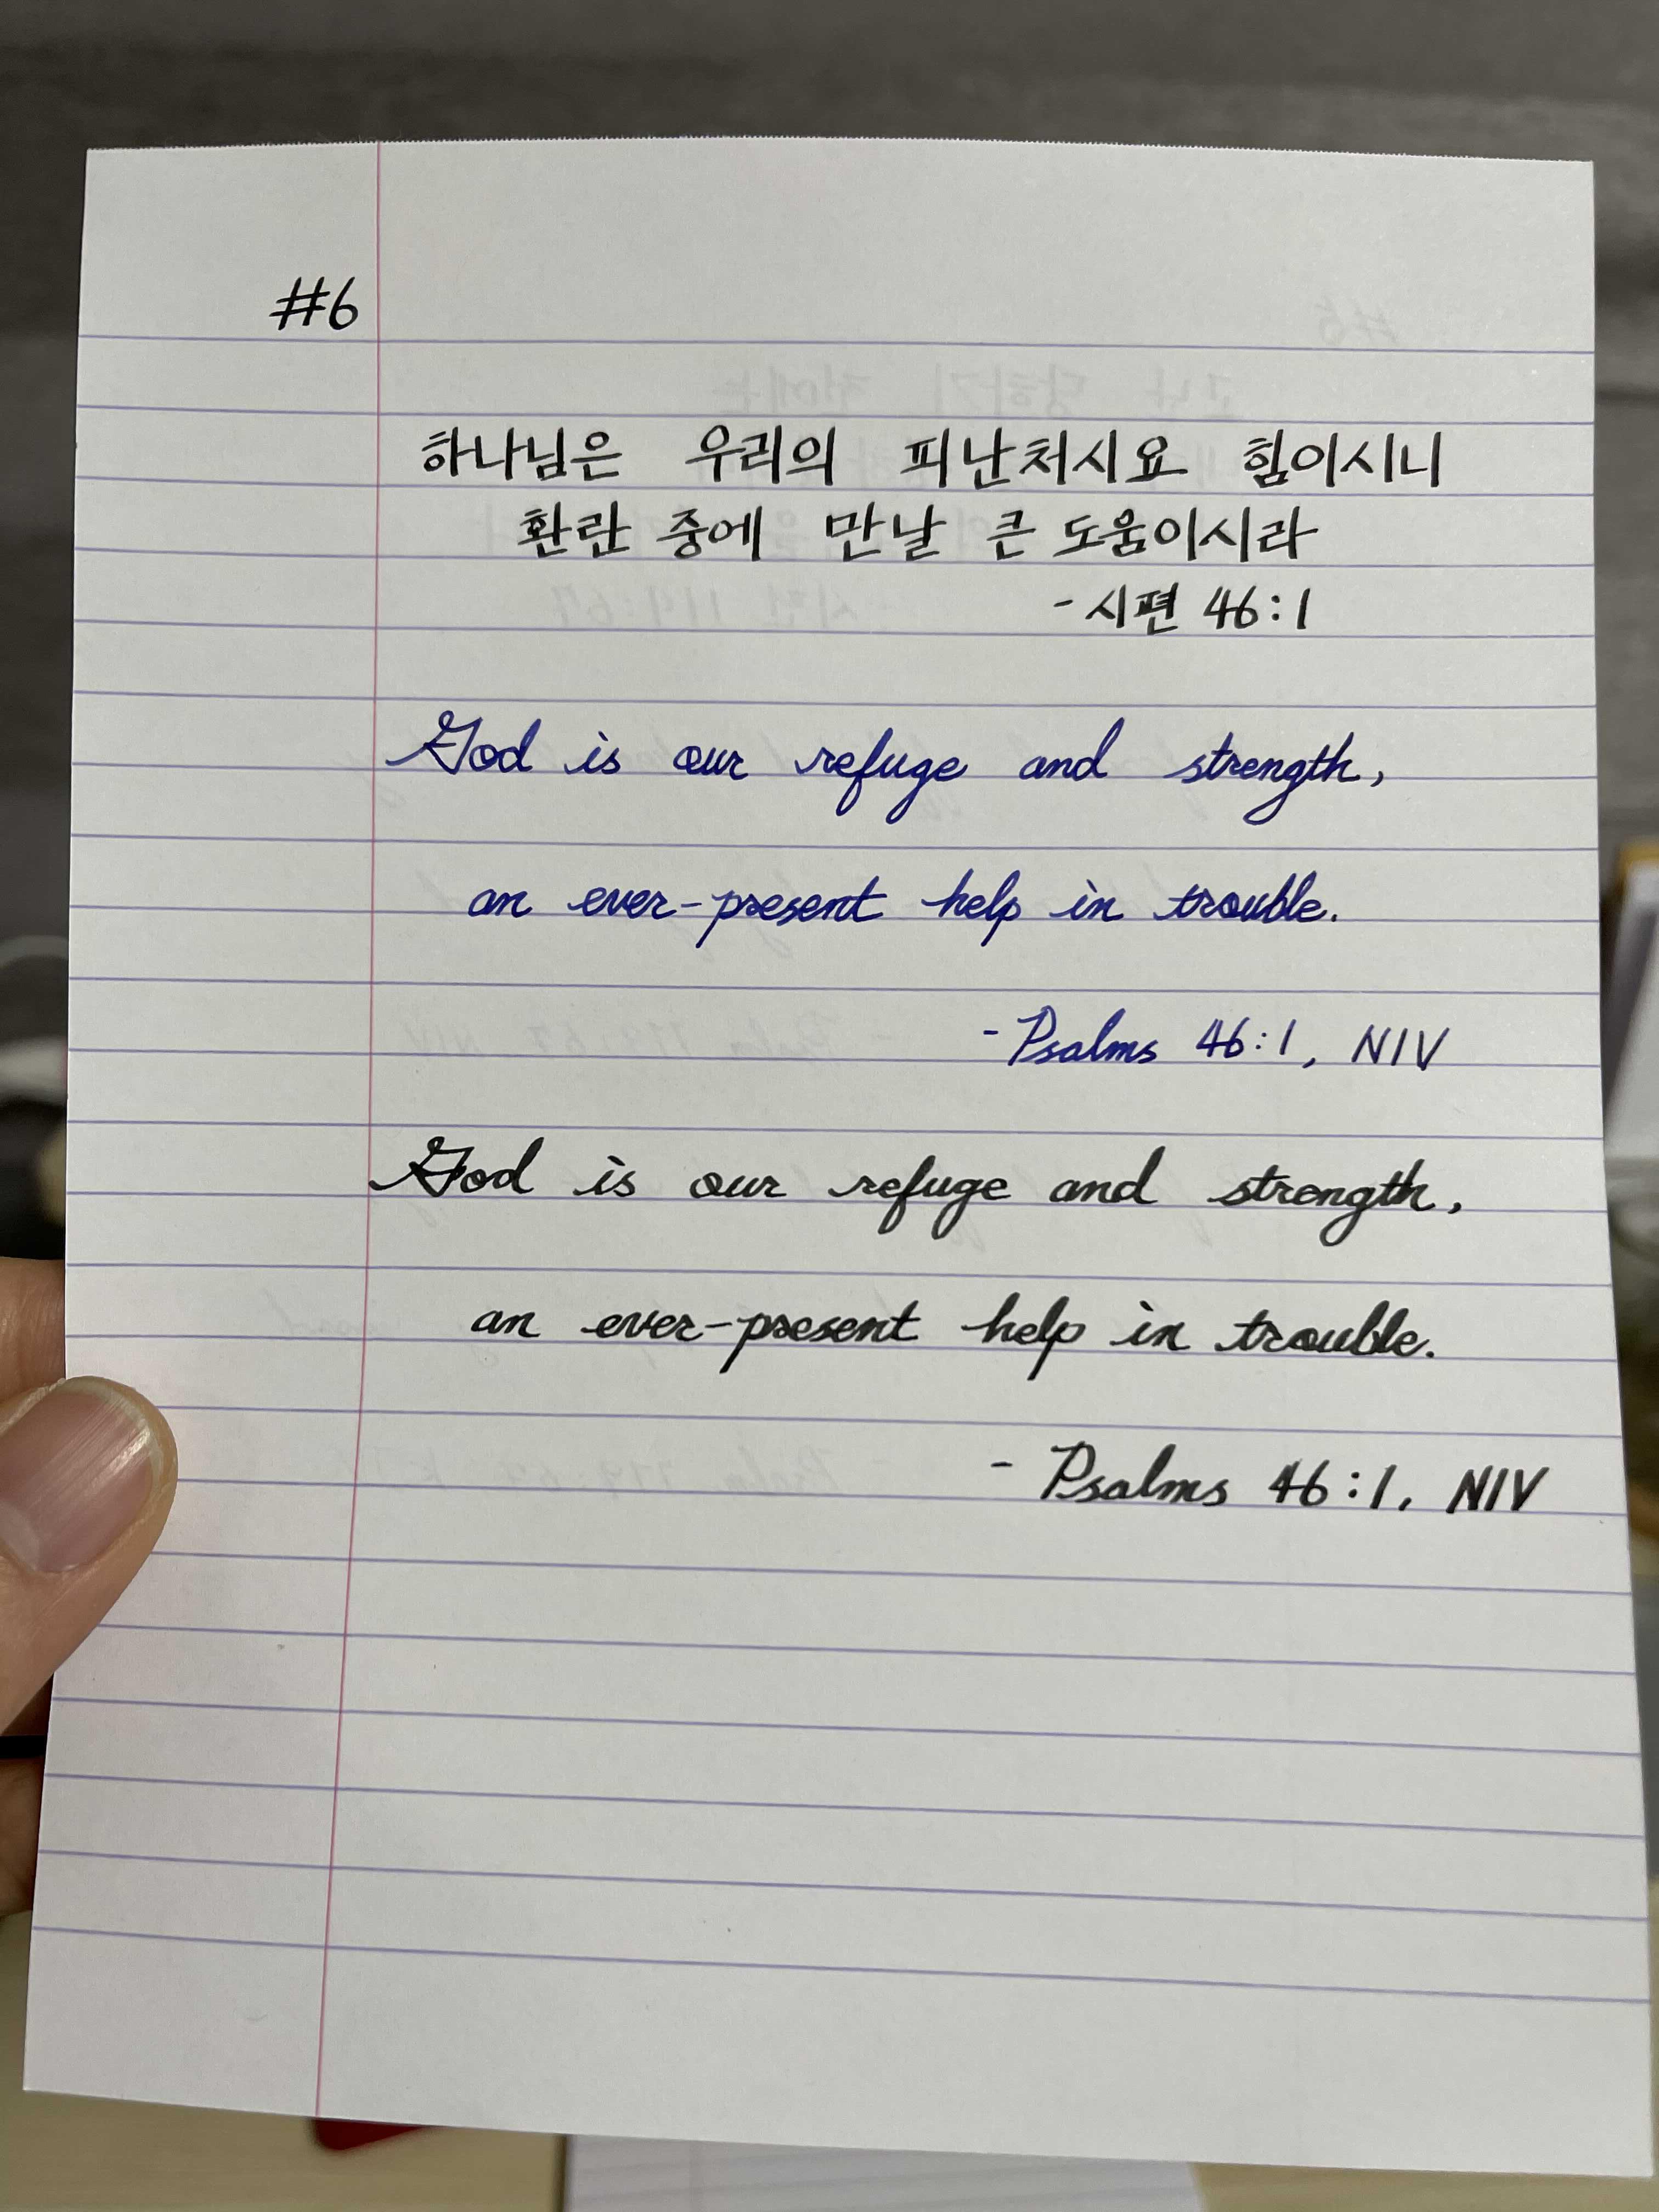 #6
하나님은 우리의 피난처시요 힘이시니
환란 중에 만날 큰 도움이시라
- 시편 46:1
God is our refuge and strength,
an ever-present help in trouble.
- Psalms 46:1, NIV
God is our refuge and strength,
an ever-present help in trouble.
- Psalms 46:1, NIV